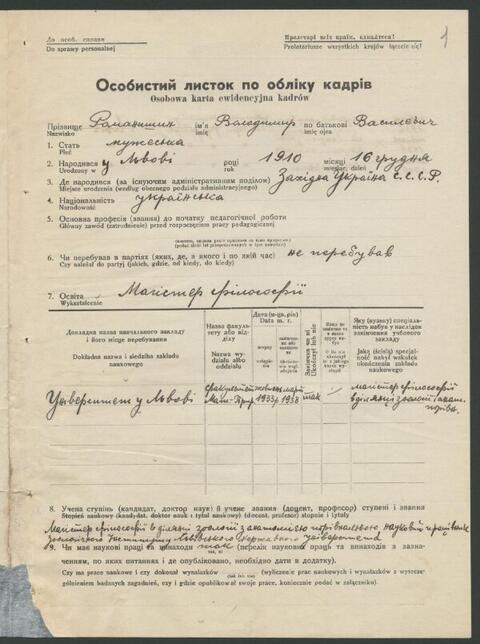 До особ. справи
Do sprawy personalnej
Пролетарі всіх країн, єднайтеся!
Proletariusze wszystkich krajów łączcie się!
1
Особистий листок по обліку кадрів
Osobowa karta ewidencyjna kadrów
Прізвище Романишин ім'я Володимир по батькові Василевич
Nazwisko imię imię ojca
1. Стать мужеська
Płeć
2. Народився у Львові році 1910 місяці 16 грудня
Urodzony w rok miesiąc, dzień
3. Де народився (за існуючим адміністративним поділом) Західна Україна С.С.С.Р.
Miejsce urodzenia (według obecnego podziału administracyjnego)
4. Національність українська
Narodowość
5. Основна професія (звання) до початку педагогічної роботи
Główny zawód (zatrudnienie) przed rozpoczęciem pracy pedagogicznej
6. Чи перебував в партіях (яких, де, з якого і по який час) не перебував
Czy należał do partyj (jakich, gdzie, od kiedy, do kiedy)
7. Освіта Магістер філософії
Wykształcenie
Докладна назва навчального закладу і його місце перебування
Dokładna nazwa i siedziba zakładu naukowego
Назва факультету або відділу
Nazwa wydziału albo oddziału
Дата (м-ця, рік)
Data m. r.
вступу
Закінчив чи ні
Ukończył lub nie
Яку (вузьку) спеціальність набув у наслідок закінчення учбового закладу
Jaką (ścisłą) specjalność nabył wskutek ukończenia zakładu naukowego
Університет у Львові
Мат-Прир. 1933 р 1938 так
магістер філософії
в ділянці зоольогії і анат.
порівн.
8. Учена ступінь (кандидат, доктор наук) й учене звання (доцент, професор) ступені і звання
Stopień naukowy (kandydat, doktor nauk i tytuł naukowy) (docent, profesor) stopnie i tytuły
Магістер філософії в ділянці зоольогії з анатомією порівняльною науковий працівник
Зоольогічного Інституту Львівського Державного Університета
9. Чи має наукові праці та винаходи так (перелік наукових праць та винаходів з зазна-
(так, ні)
ченням, по яких питаннях і де опубліковано, необхідно дати в додатку).
Czy ma prace naukowe i czy dokonał wynalazków (wyliczenie prac naukowych i wynalazków z wyszcze-
(tak lub nie)
gólnieniem badanych zagadnień, czy i gdzie opublikował swoje prace, koniecznie podać w załączniku).